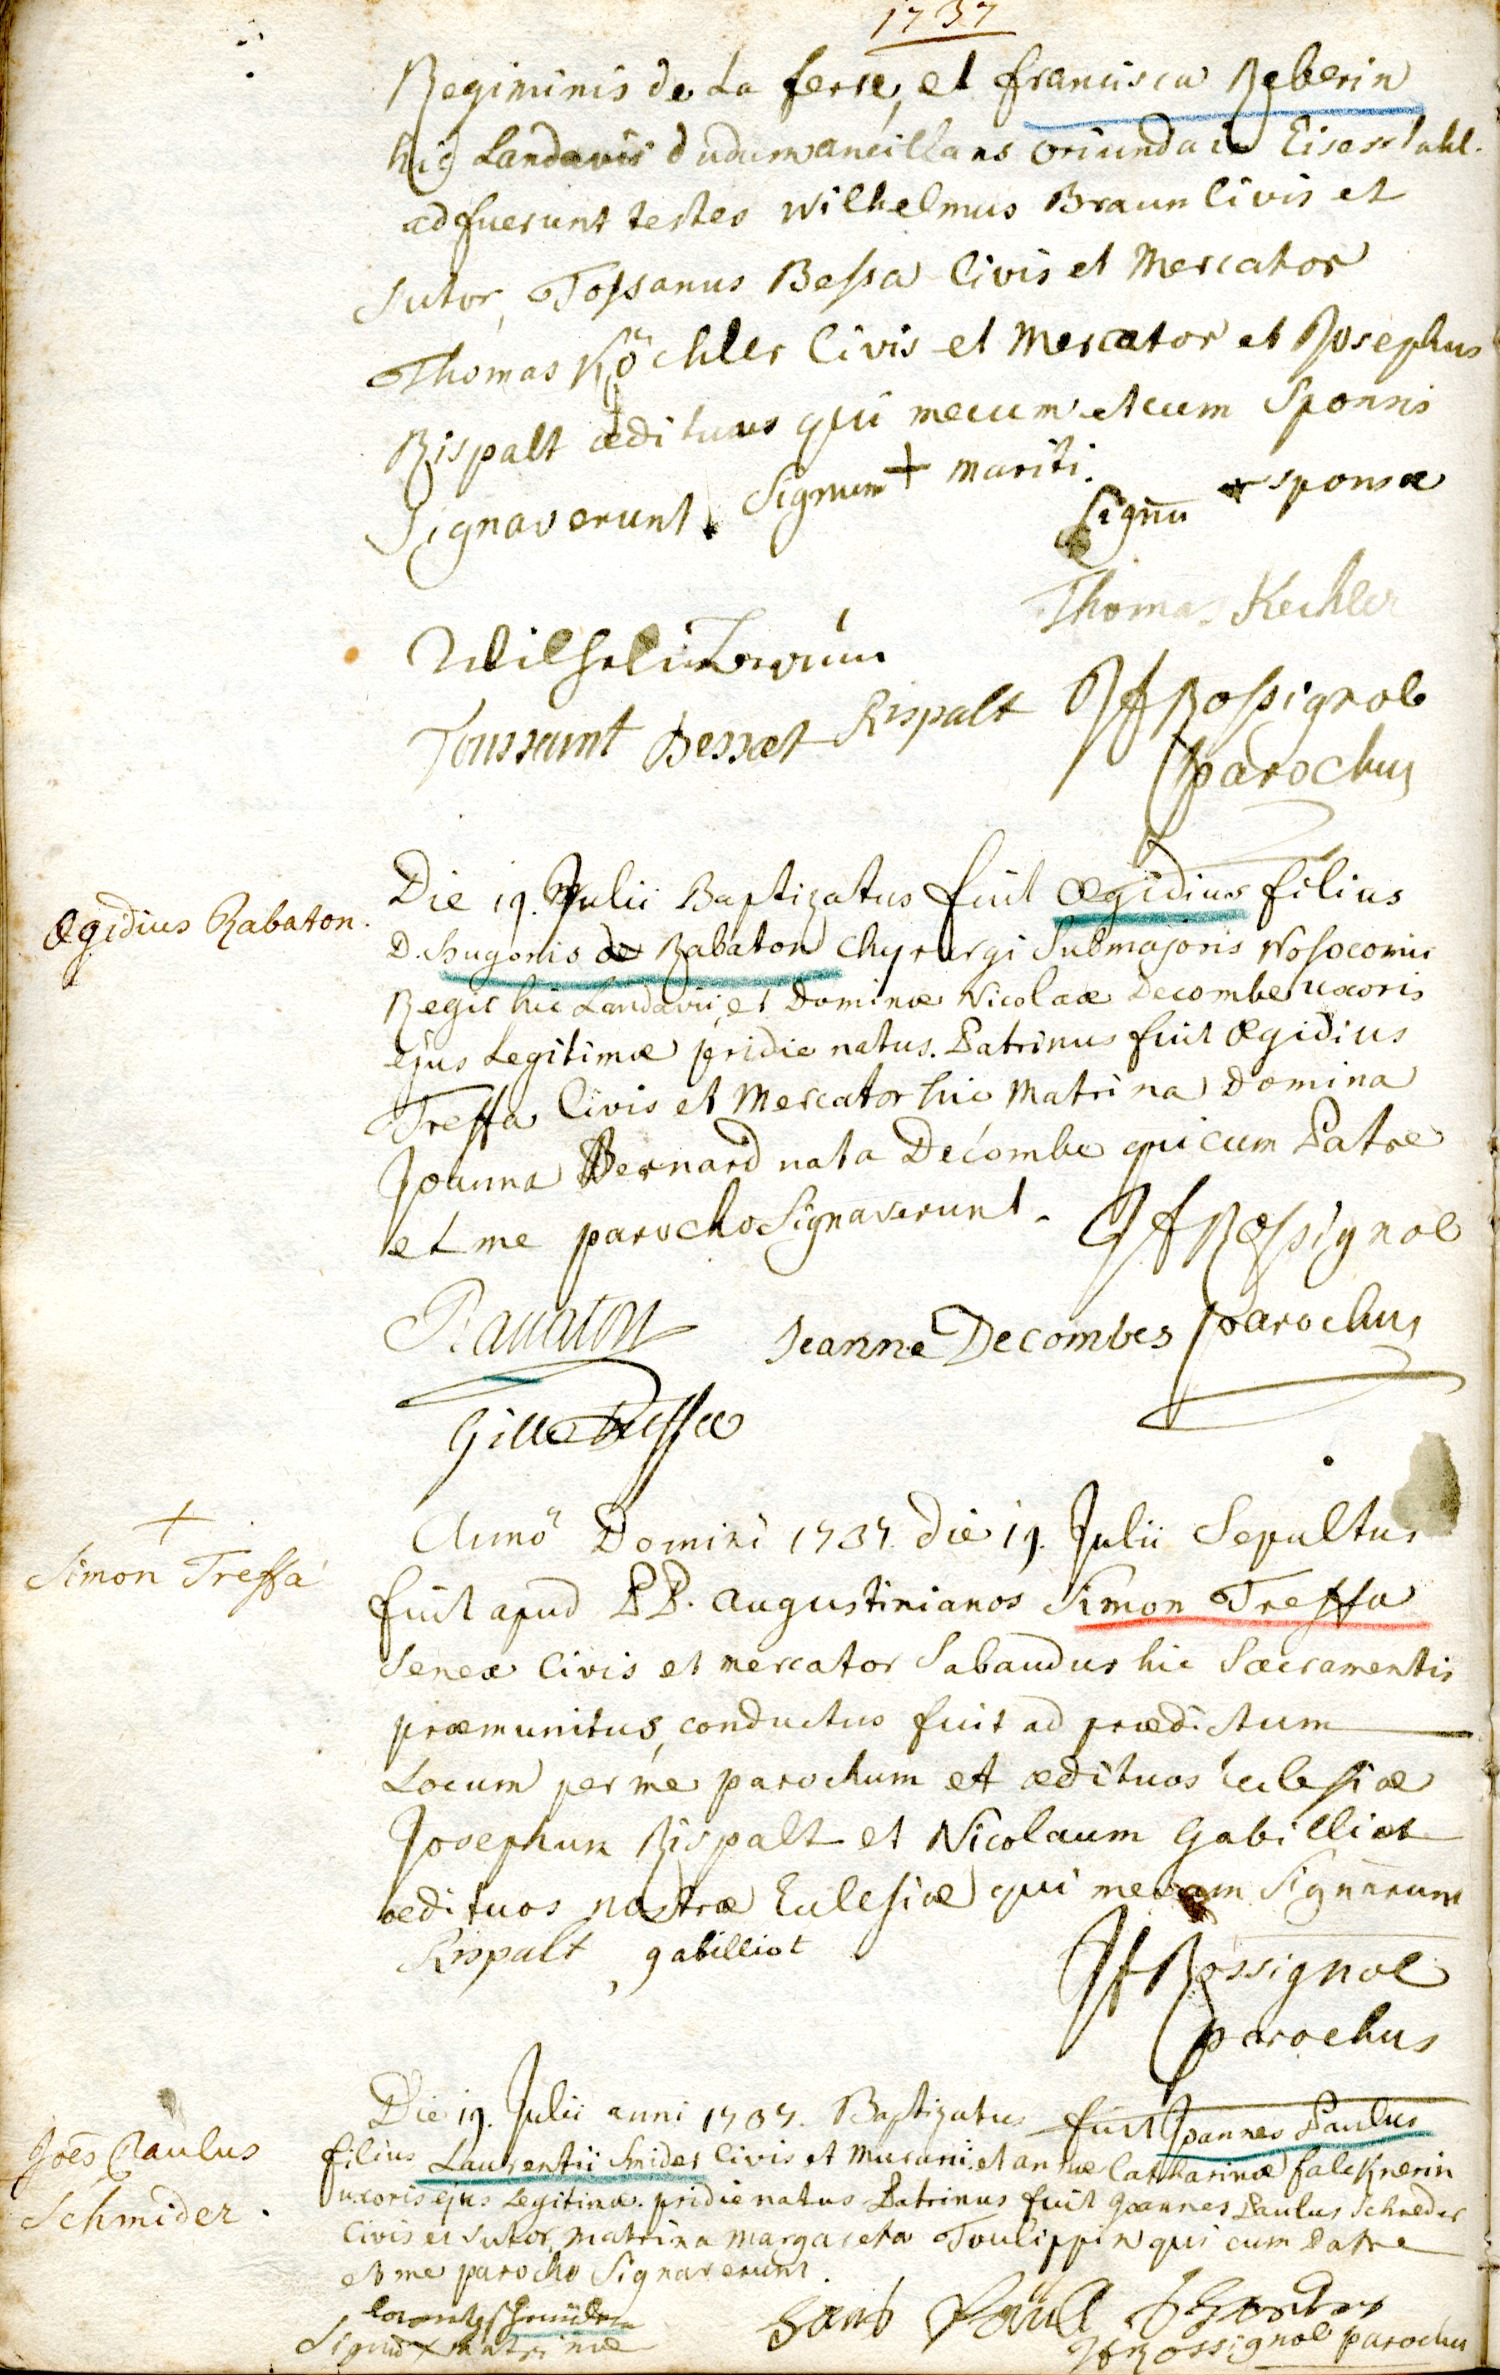 1737
Regiminis de La fere, et francisca Reberin
hic Landavis dudum ancillans oriunda
adfuerunt testes Wilhelmus Braun Civis et
Sutor, Tossanus Bessa Civis et Mercator
Thomas Köchler Civis et Mercator et Josephus
Rispalt ædituus qui mecum et cum Sponsis
Signaverunt. Signum + mariti.
Signū + sponsæ
Thomas Kechler
Toussaint Bessat Rispalt JfRossignol
parochus
Ægidius Rabaton.
Die 19. Julii Baptizatus fuit Ægidius filius
D. Hugonis de Rabaton Chyrurgi Submajoris Nosocomii
Regii hic Landavii, et Dominæ Nicolaæ Decombe uxoris
ejus Legitimæ pridie natus. Patrinus fuit Ægidius
Treffa Civis et Mercator hic Matrina Domina
Joanna Bernard nata Decombe qui cum Patre
et me parocho Signaverunt. JfRossignol
Ravaton Jeanne Decombes parochus
Gille Treffa
+
Simon Treffa
Anno Domini 1737. die 19. Julii Sepultus
fuit apud PP. Augustinianos Simon Treffa
Senex Civis et mercator Sabaudus hic Sacramentis
præmunitus, conductus fuit ad prædictum
Locum per me parochum et ædituos Eclesiæ
Josephum Rispalt et Nicolaum Gabilliot
ædituos nostræ Eclesiæ qui mecum Signārunt
Rispalt, gabilliot
JfRossignol
parochus
Joēs Paulus
Schmider.
Die 19. Julii anni 1737. Baptizatus fuit Joannes Paulus
filius Laurentii Smider Civis et Murarii et annæ Catharinæ falcknerin
uxoris ejus Legitimæ. pridie natus Patrinus fuit Joannes Paulus Schreder
Civis et Sutor, Matrina Margareta Toulippin qui cum Patre
et me parocho Signaverunt.
Signū + matrinæ
JfRossignol parochus